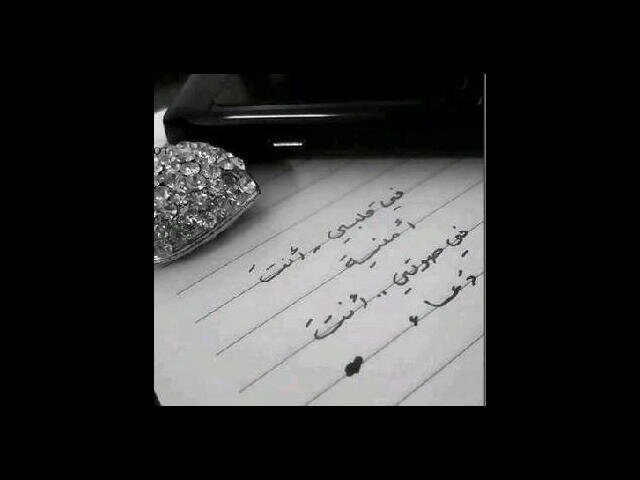 في قلبي .. أنتَ
أمنية
في صوتي .. أنتَ
دعاء